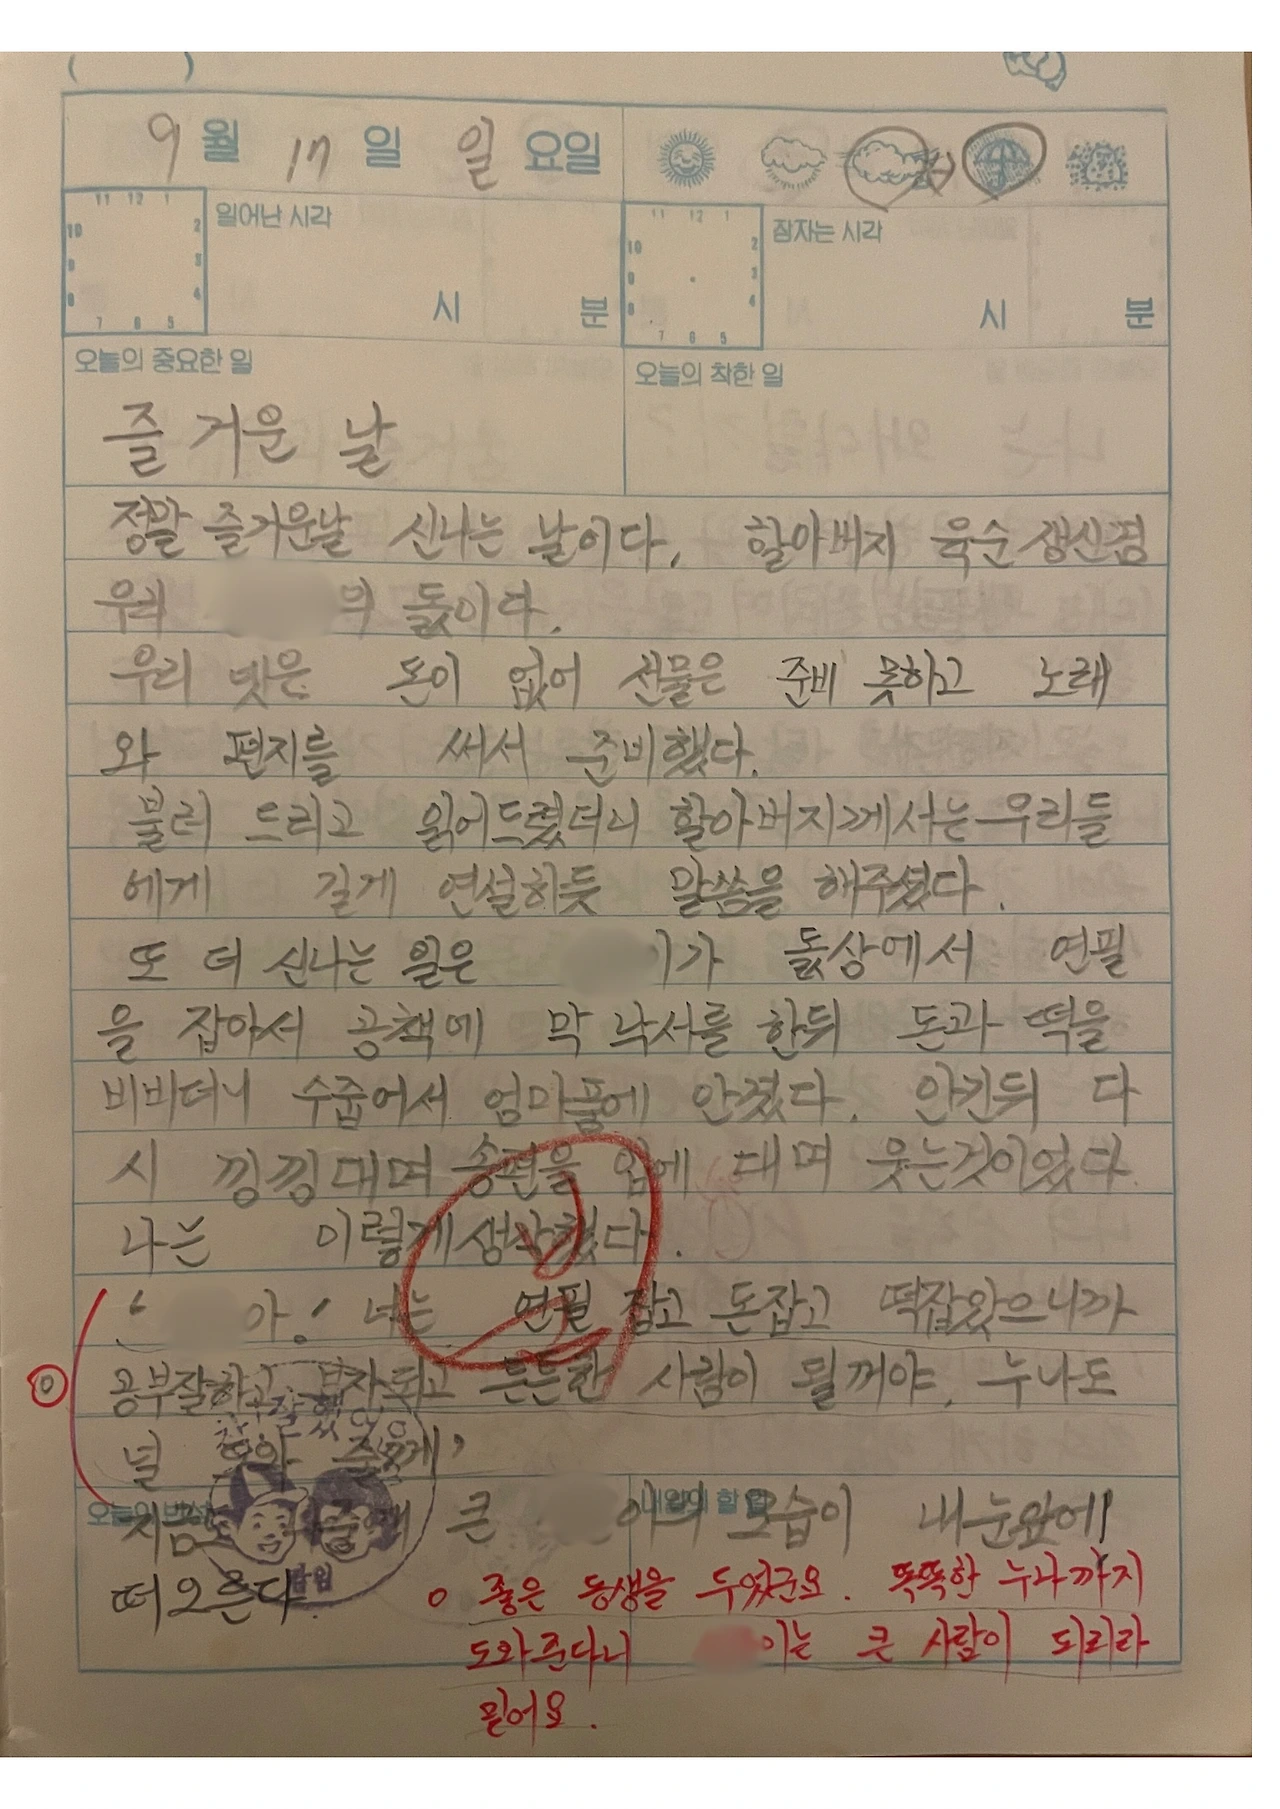 9월 17일 일요일
11 12 1
10 2
9 3
8 4
7 6 5
일어난 시각
시 분
11 12 1
10 2
9 3
8 4
7 6 5
잠자는 시각
시 분
오늘의 중요한 일
오늘의 착한 일
즐거운 날
정말 즐거운날 신나는 날이다. 할아버지 육순 생신겸
우리 의 돐이다.
우리 은 돈이 없어 선물은 준비 못하고 노래
와 편지를 써서 준비했다.
불러 드리고 읽어드렸더니 할아버지께서는 우리들
에게 길게 연설하듯 말씀을 해주셨다.
또 더 신나는 일은 이가 돐상에서 연필
을 잡아서 공책에 막 낙서를 한뒤 돈과 떡을
비비더니 수줍어서 엄마품에 안겼다. 안긴뒤 다
시 낑낑대며 송편을 입에 대며 웃는것이었다.
나는 이렇게 생각했다.
‘ 아! 너는 연필 잡고 돈잡고 떡잡았으니까
공부잘하고 부자되고 튼튼한 사람이 될꺼야. 누나도
널 도와 줄게’
참 잘했어요
오늘의 반성
내일의 할 일
지금도 큰 이의 모습이 내 눈앞에
떠오른다.
o 좋은 동생을 두었군요. 똑똑한 누나까지
도와준다니 이는 큰 사람이 되리라
믿어요.